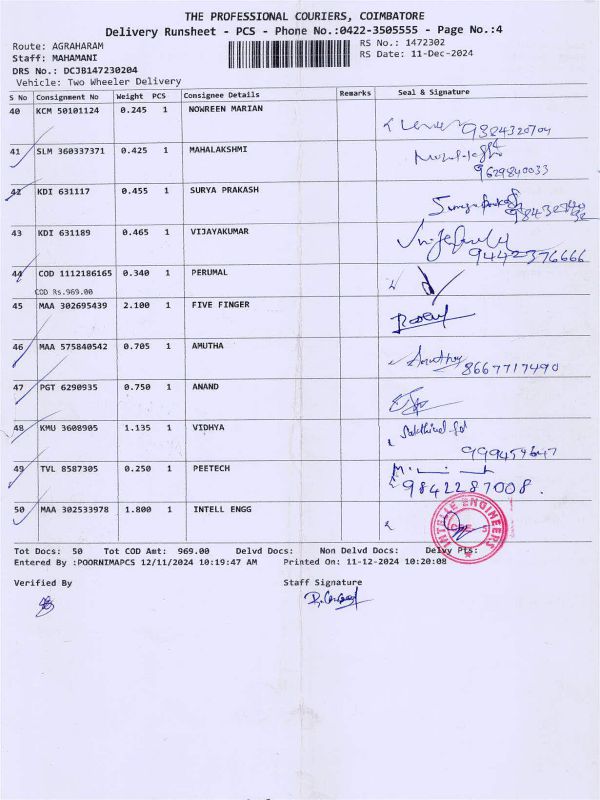 THE PROFESSIONAL COURIERS, COIMBATORE
Delivery Runsheet - PCS - Phone No.:0422-3505555 - Page No.:4
Route: AGRAHARAM RS No.: 1472302
Staff: MAHAMANI RS Date: 11-Dec-2024
DRS No.: DCJB147230204
Vehicle: Two Wheeler Delivery
S No Consignment No Weight PCS Consignee Details Remarks Seal & Signature
40 KCM 50101124 0.245 1 NOWREEN MARIAN
9384320704
41 SLM 360337371 0.425 1 MAHALAKSHMI
9629840033
42 KDI 631117 0.455 1 SURYA PRAKASH
43 KDI 631189 0.465 1 VIJAYAKUMAR
9442376666
44 COD 1112186165 0.340 1 PERUMAL
COD Rs.969.00
45 MAA 302695439 2.100 1 FIVE FINGER
46 MAA 575840542 0.705 1 AMUTHA
Amutha 8667717490
47 PGT 6290935 0.750 1 ANAND
48 KMU 3608905 1.135 1 VIDHYA
49 TVL 8587305 0.250 1 PEETECH
9842287008.
50 MAA 302533978 1.800 1 INTELL ENGG
INTELLE ENGINEERS
CBE-5
Tot Docs: 50 Tot COD Amt: 969.00 Delvd Docs: Non Delvd Docs: Delvy Pts:
Entered By :POORNIMAPCS 12/11/2024 10:19:47 AM Printed On: 11-12-2024 10:20:08
Verified By Staff Signature